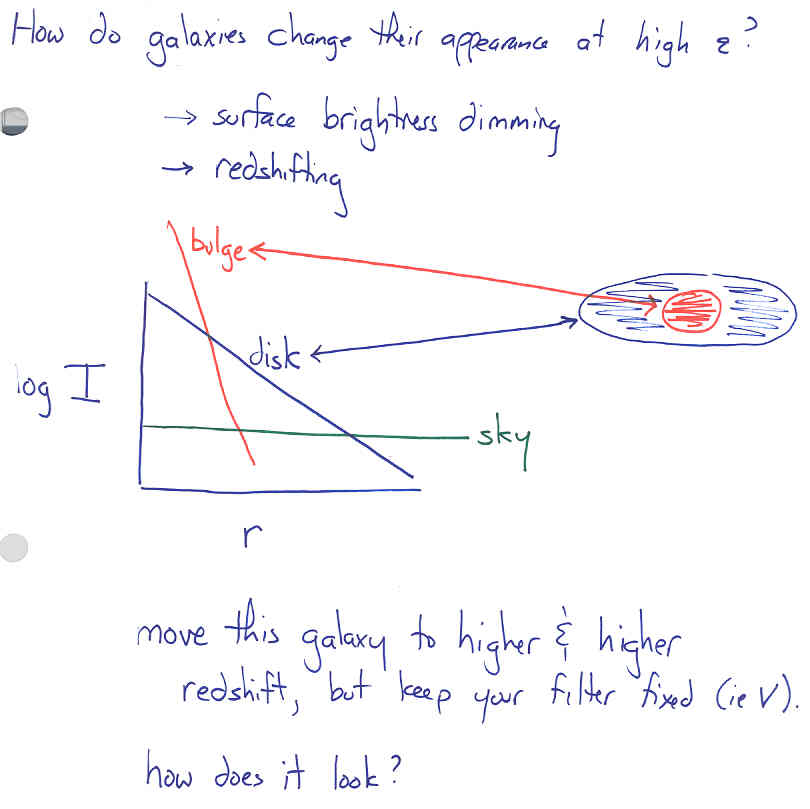 How do galaxies change their appearance at high z?
→ surface brightness dimming
→ redshifting
bulge
disk
log I
sky
r
move this galaxy to higher & higher
redshift, but keep your filter fixed (ie V).
how does it look?